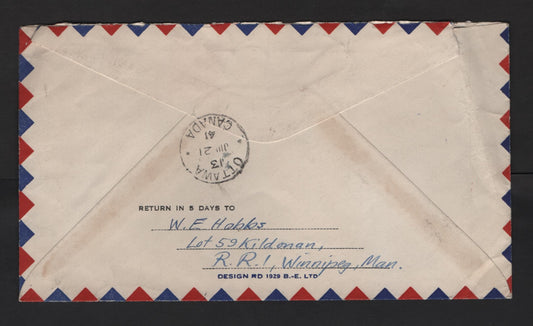 OTTAWA
13
JUL 21
41
CANADA
RETURN IN 5 DAYS TO
W. E. Hobbs
Lot 59 Kildonan,
R.R.1, Winnipeg, Man.
DESIGN RD 1929 B.-E. LTD